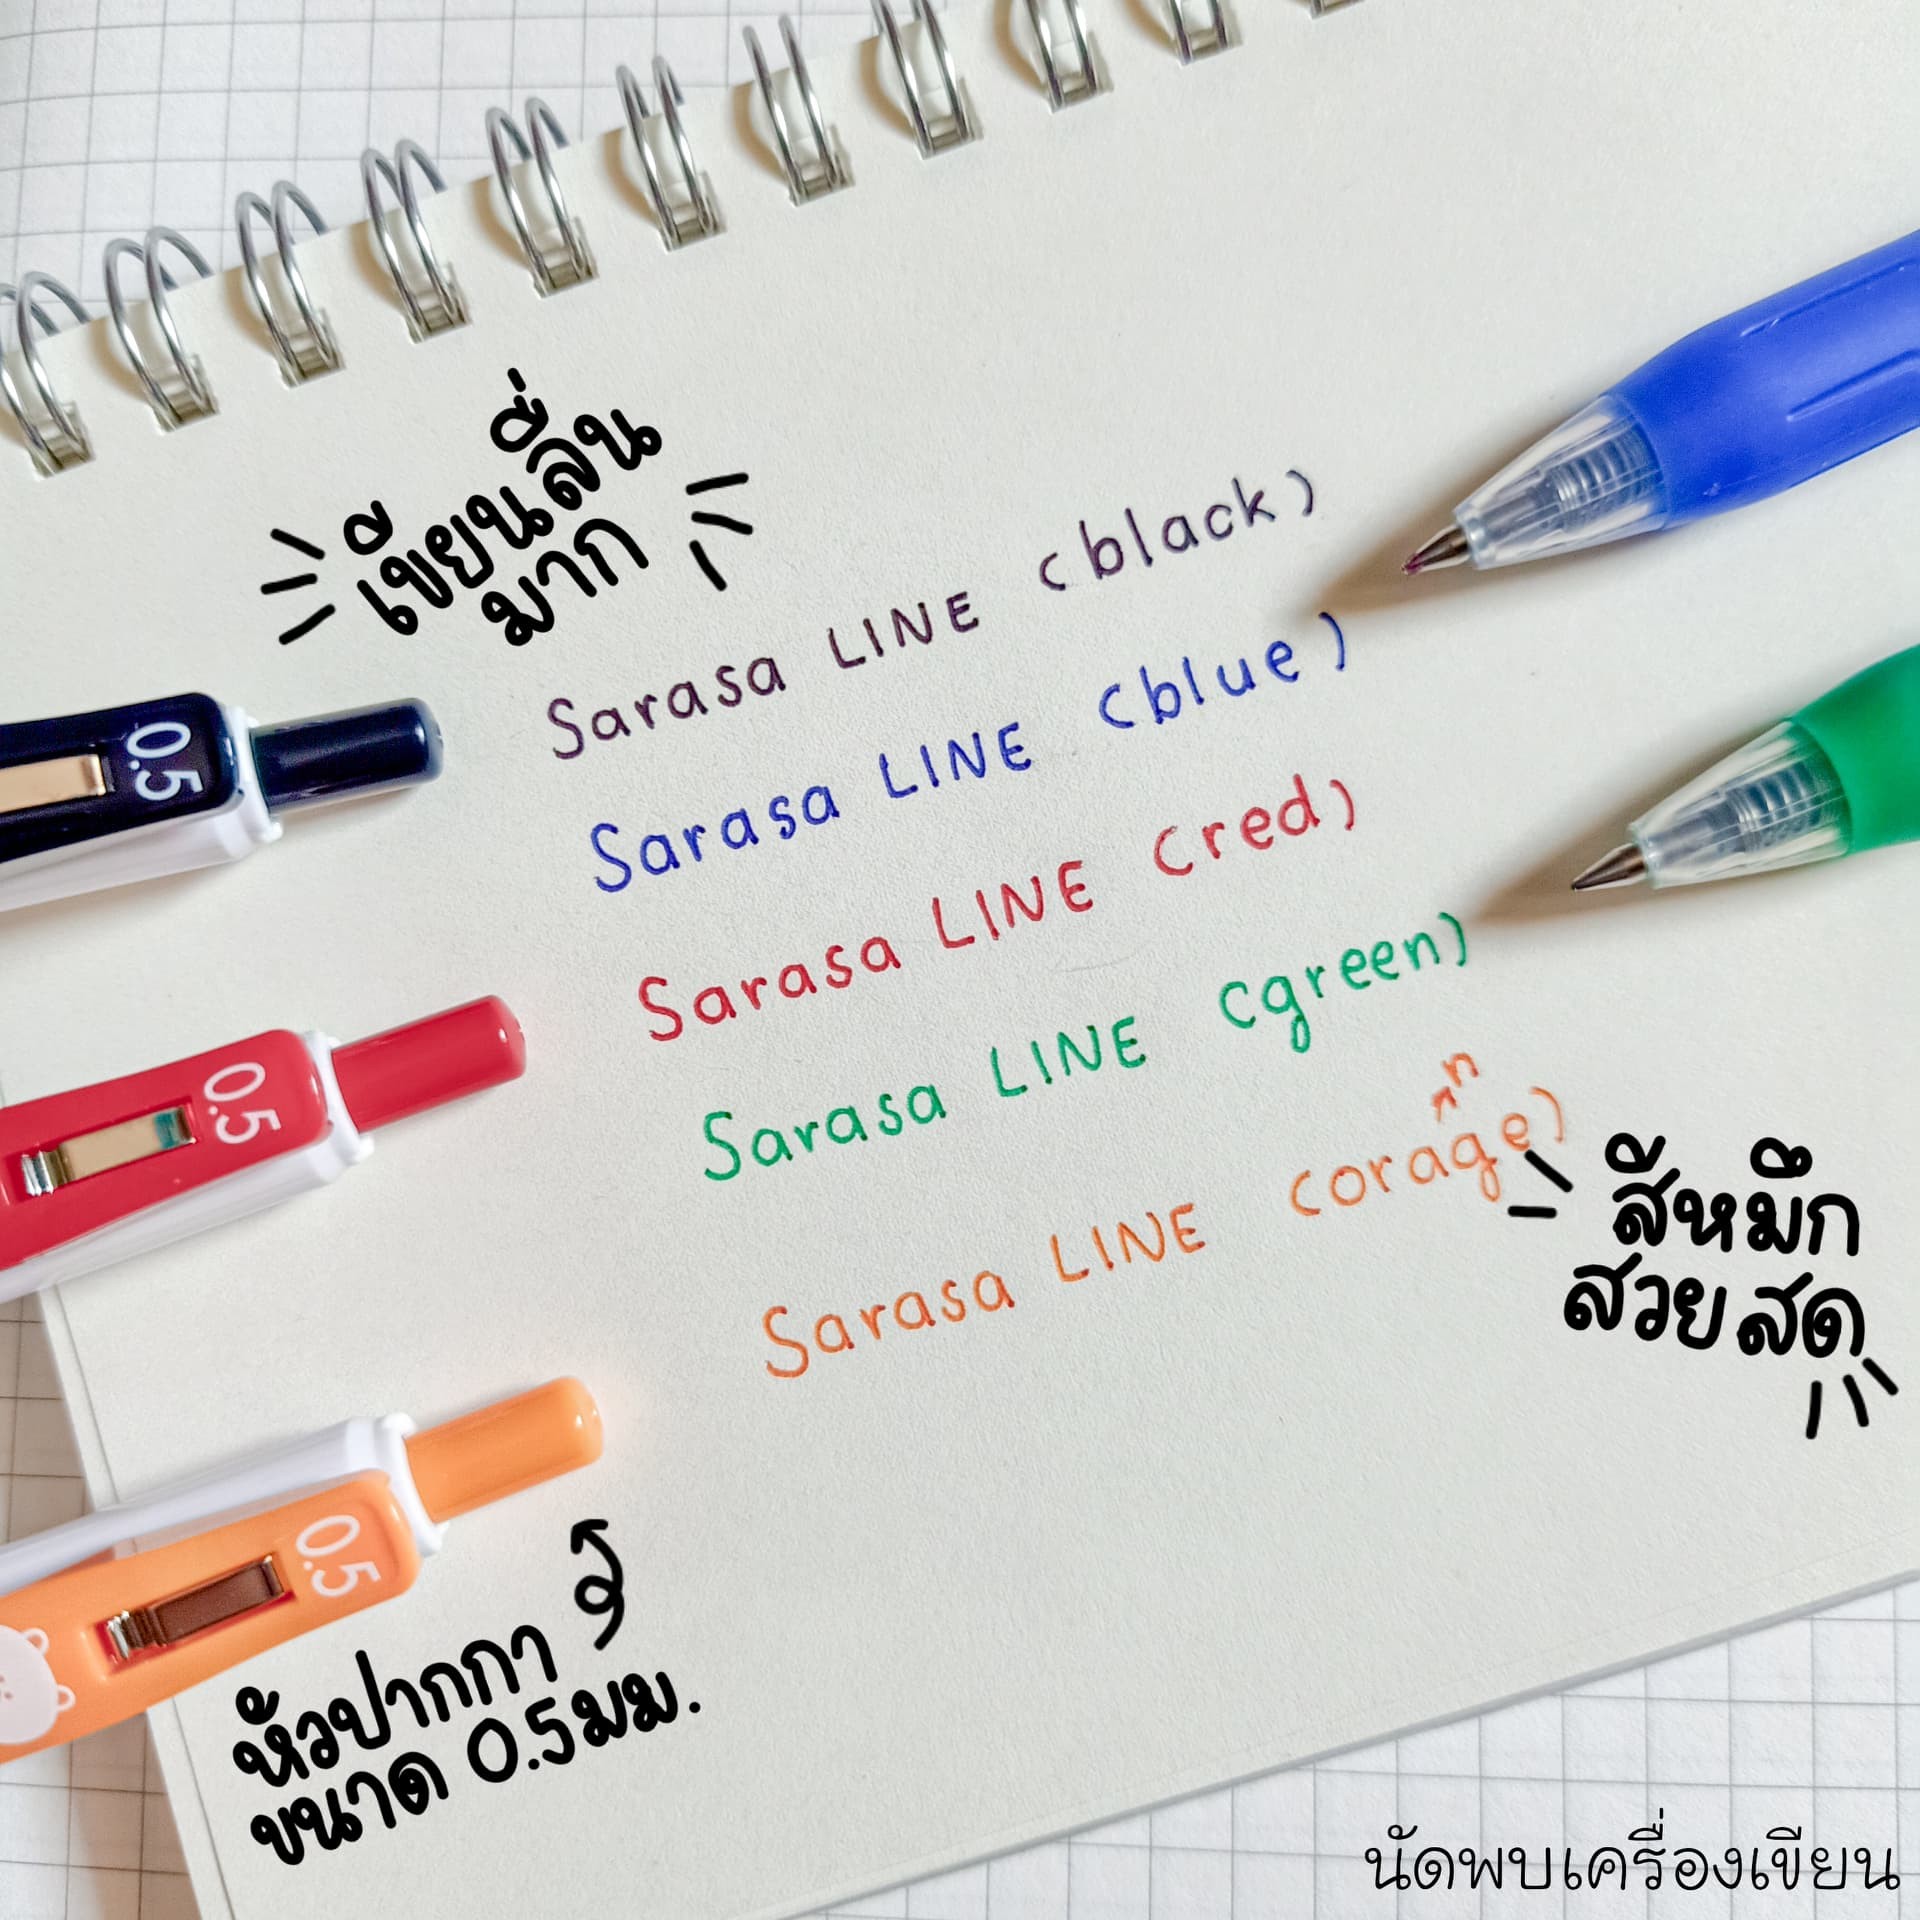 เขียนลื่น
มาก
Sarasa LINE (black)
Sarasa LINE (blue)
Sarasa LINE (red)
Sarasa LINE (green)
n
Sarasa LINE (orage)
0.5
0.5
0.5
สีหมึก
สวยสด
หัวปากกา
ขนาด 0.5มม.
นัดพบเครื่องเขียน